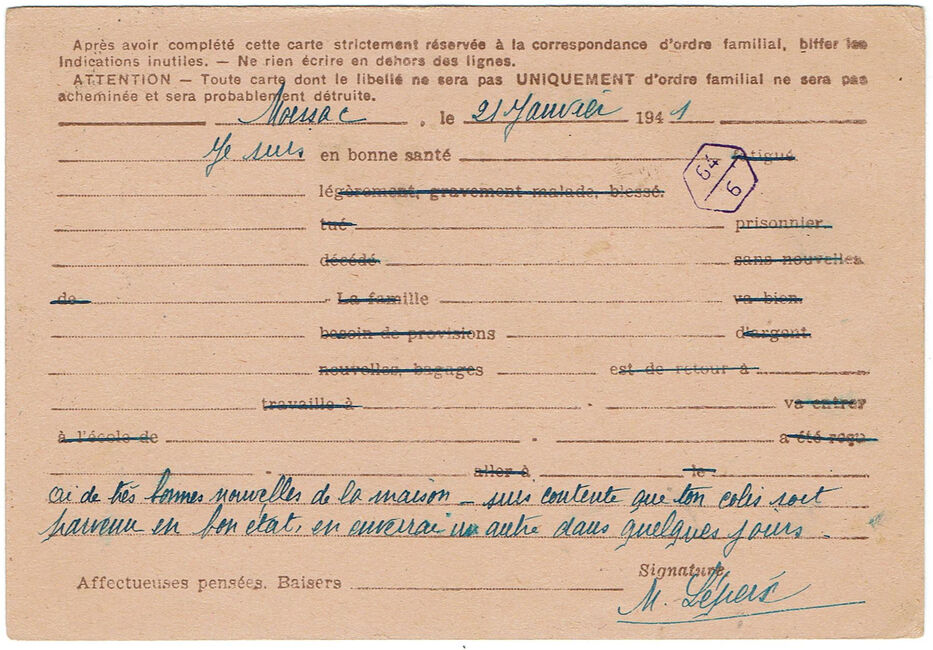 Après avoir complété cette carte strictement réservée à la correspondance d'ordre familial, biffer les
indications inutiles. — Ne rien écrire en dehors des lignes.
ATTENTION — Toute carte dont le libellé ne sera pas UNIQUEMENT d'ordre familial ne sera pas
acheminée et sera probablement détruite.
Moissac, le 21 Janvier 1941
Je suis en bonne santé fatigué
64
6
légèrement, gravement malade, blessé.
tué prisonnier.
décédé sans nouvelles
de La famille va bien.
besoin de provisions d'argent.
nouvelles, bagages est de retour à
travaille à va entrer
à l'école de a été reçu
aller à le
ai de très bonnes nouvelles de la maison — suis contente que ton colis soit
parvenu en bon état, en enverrai un autre dans quelques jours.
Affectueuses pensées. Baisers
Signature
M. Lépers